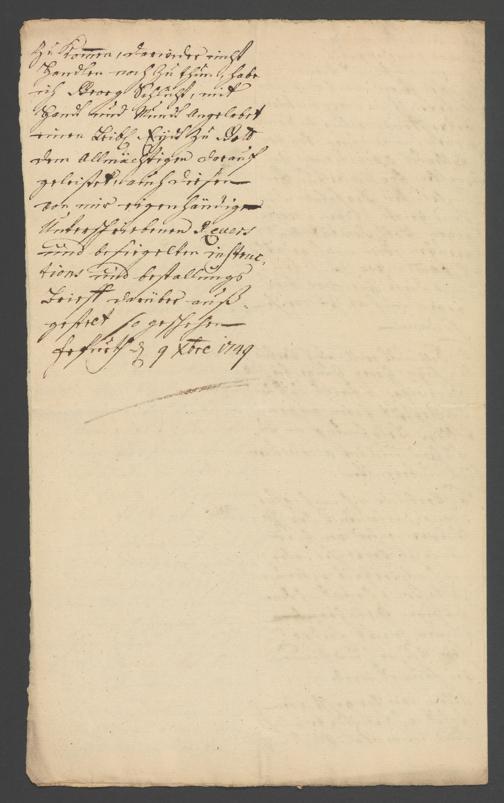 zu Kommen, darwieder nicht
Handlen noch zu thun, habe
ich Georg Schlicht, mit
Hand und Mund Angelobet
einen Leibl. Eydt zu Gott
dem Allmächtigen darauf
geleistet, auch diesen
von mir eigenhändig
Unterschriebenen Revers
und besiegelten instruc-
tions und bestallungs
Brieff darüber auß-
gestelt so geschehen
d. 9 Xbre 1749